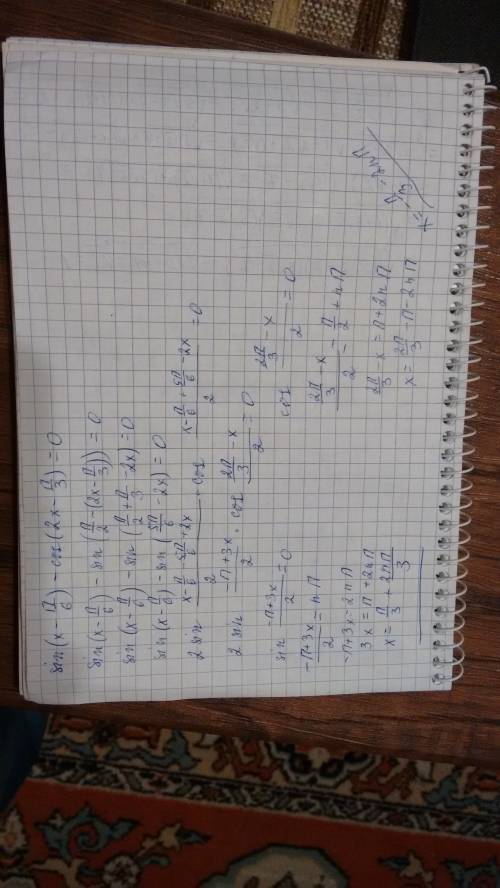 sin(x-π/6) - cos(2x-π/3)=0
sin(x-π/6) - sin(π/2-(2x-π/3))=0
sin(x-π/6) - sin(π/2+π/3-2x)=0
sin(x-π/6) - sin(5π/6-2x)=0
2 sin (x-π/6-5π/6+2x)/2 · cos (x-π/6+5π/6-2x)/2 =0
2 sin (-π+3x)/2 · cos (2π/3-x)/2 =0
sin (-π+3x)/2 =0
(-π+3x)/2 = nπ
-π+3x=2nπ
3x=π+2nπ
x=π/3+2nπ/3
cos (2π/3-x)/2 =0
(2π/3-x)/2 = π/2+nπ
2π/3-x=π+2nπ
x=2π/3-π-2nπ